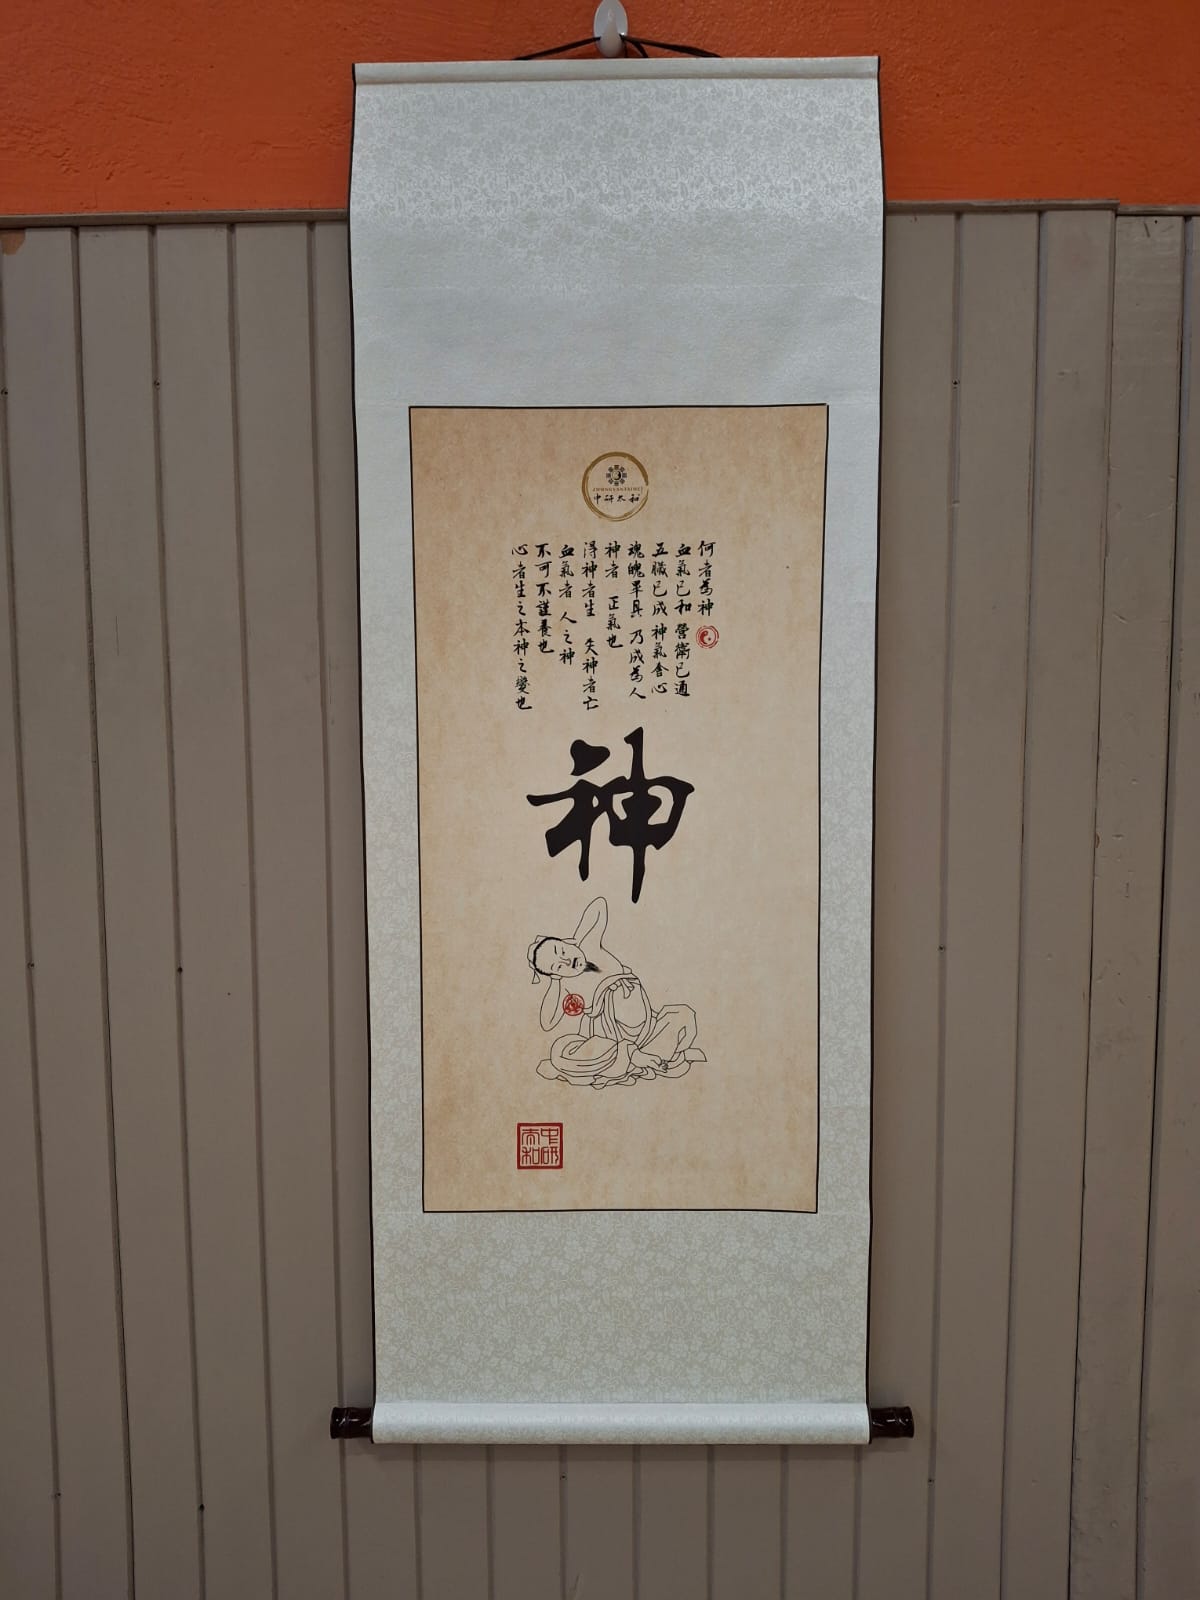 ZHONGYANTAIHE
中研太和
何者為神
血氣已和 營衛已通
五臟已成 神氣舍心
魂魄畢具 乃成為人
神者 正氣也
得神者生 失神者亡
血氣者 人之神
不可不謹養也
心者生之本神之變也
神
中研
太和